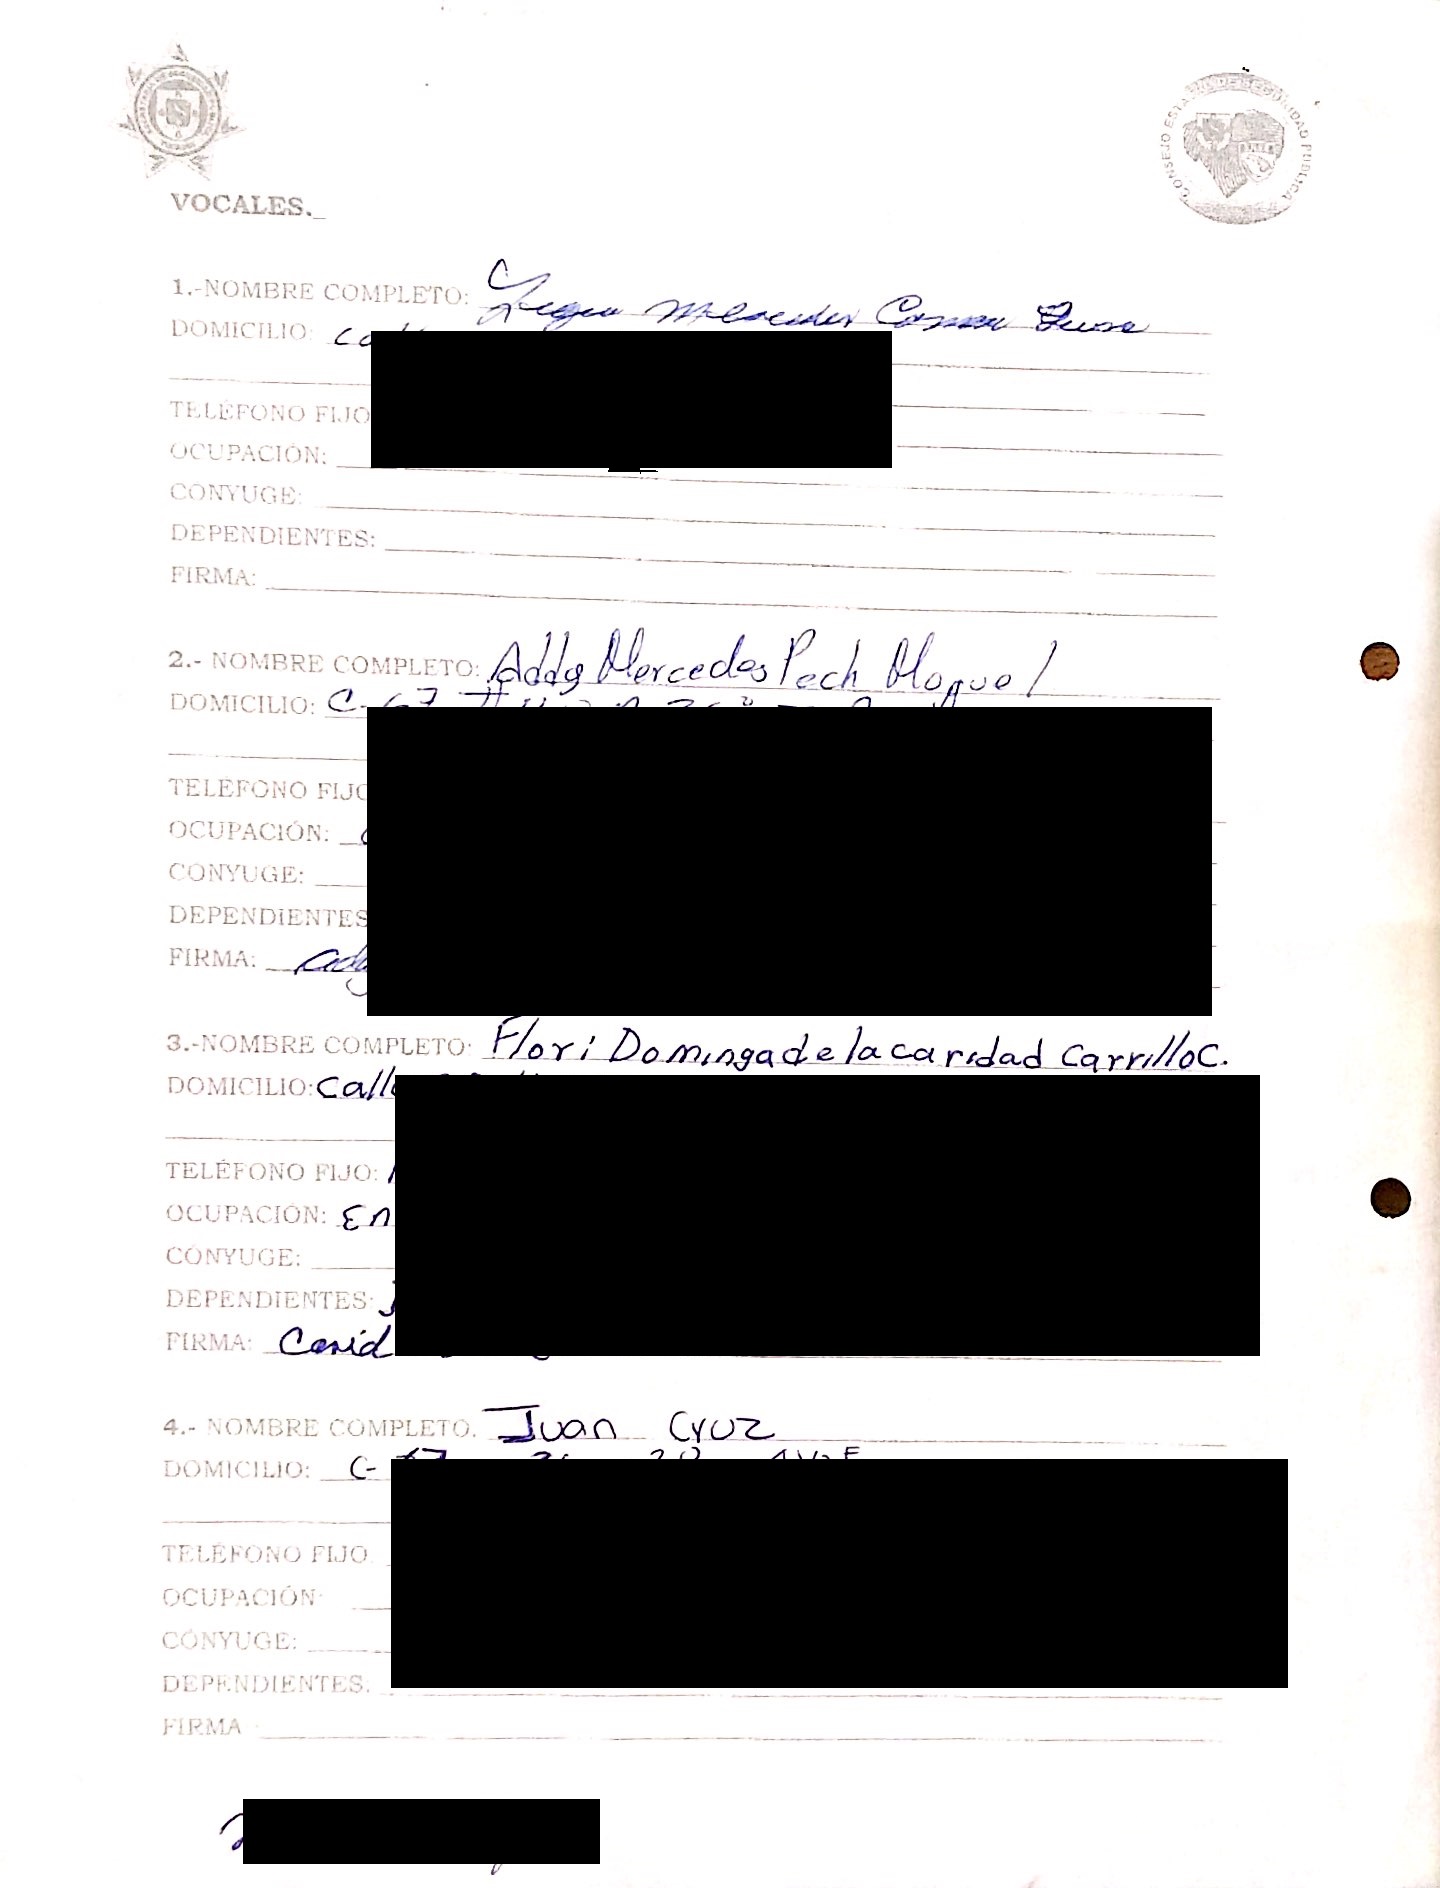 CONSEJO ESTATAL DE SEGURIDAD PUBLICA
VOCALES._
1.-NOMBRE COMPLETO:
DOMICILIO:
TELÉFONO FIJO
OCUPACIÓN:
CONYUGE:
DEPENDIENTES:
FIRMA:
2.- NOMBRE COMPLETO: Addy Mercedes Pech Moguel
DOMICILIO: C-67
TELEFONO FIJO
OCUPACIÓN:
CONYUGE:
DEPENDIENTES
FIRMA:
3.-NOMBRE COMPLETO: Flori Dominga de la caridad Carrillo C.
DOMICILIO: Calle
TELÉFONO FIJO:
OCUPACIÓN: En
CÓNYUGE:
DEPENDIENTES:
FIRMA: Carid
4.- NOMBRE COMPLETO. Juan Cruz
DOMICILIO: C-
TELÉFONO FIJO.
OCUPACIÓN:
CÓNYUGE:
DEPENDIENTES:
FIRMA :